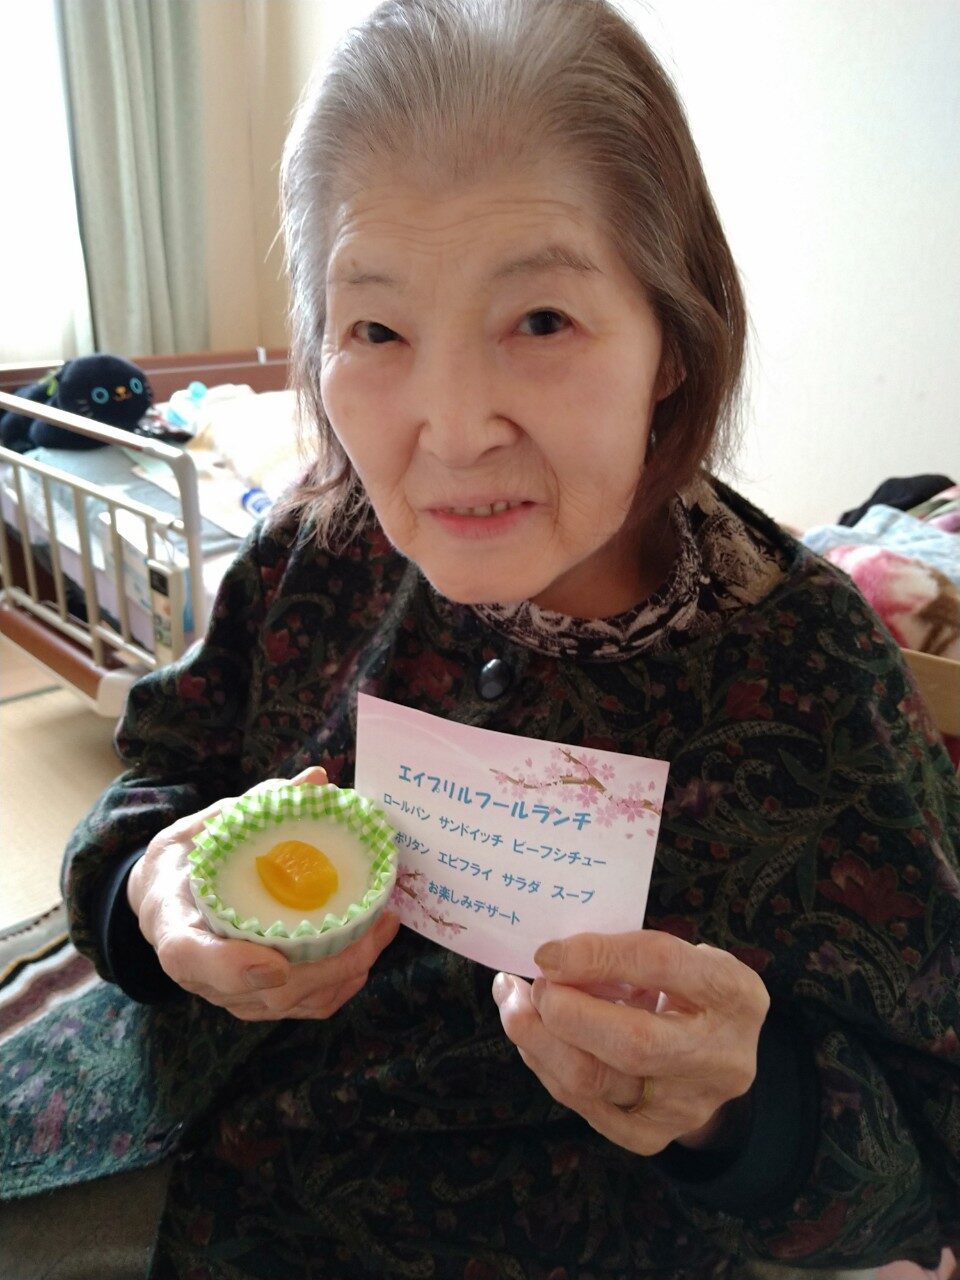 エイプリルフールランチ
ロールパン サンドイッチ ビーフシチュー
ポリタン エビフライ サラダ スープ
お楽しみデザート